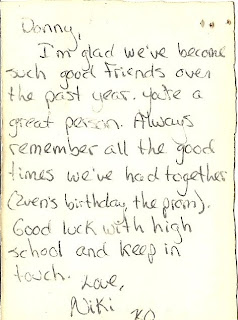 Donny,
I'm glad we've become
such good friends over
the past year. You're a
great person. Always
remember all the good
times we've had together
(2ven's birthday, the prom).
Good luck with high
school and keep in
touch.
Love,
Niki
XO